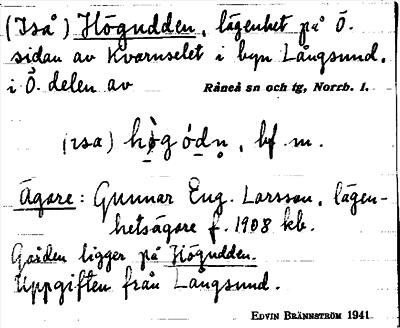 (Iså) Högudden, lägenhet på Ö.
sidan av Kvarnselet i byn Långsund.
i Ö. delen av Råneå sn och tg, Norrb. l.
(ɪsa) hȯ̀g ódn̥, bf. m.
Ägare: Gunnar Eug. Larsson, lägen-
hetsägare f. 1908 kb.
Gården ligger på Högudden.
Uppgiften från Långsund.
EDVIN BRÄNNSTRÖM 1941